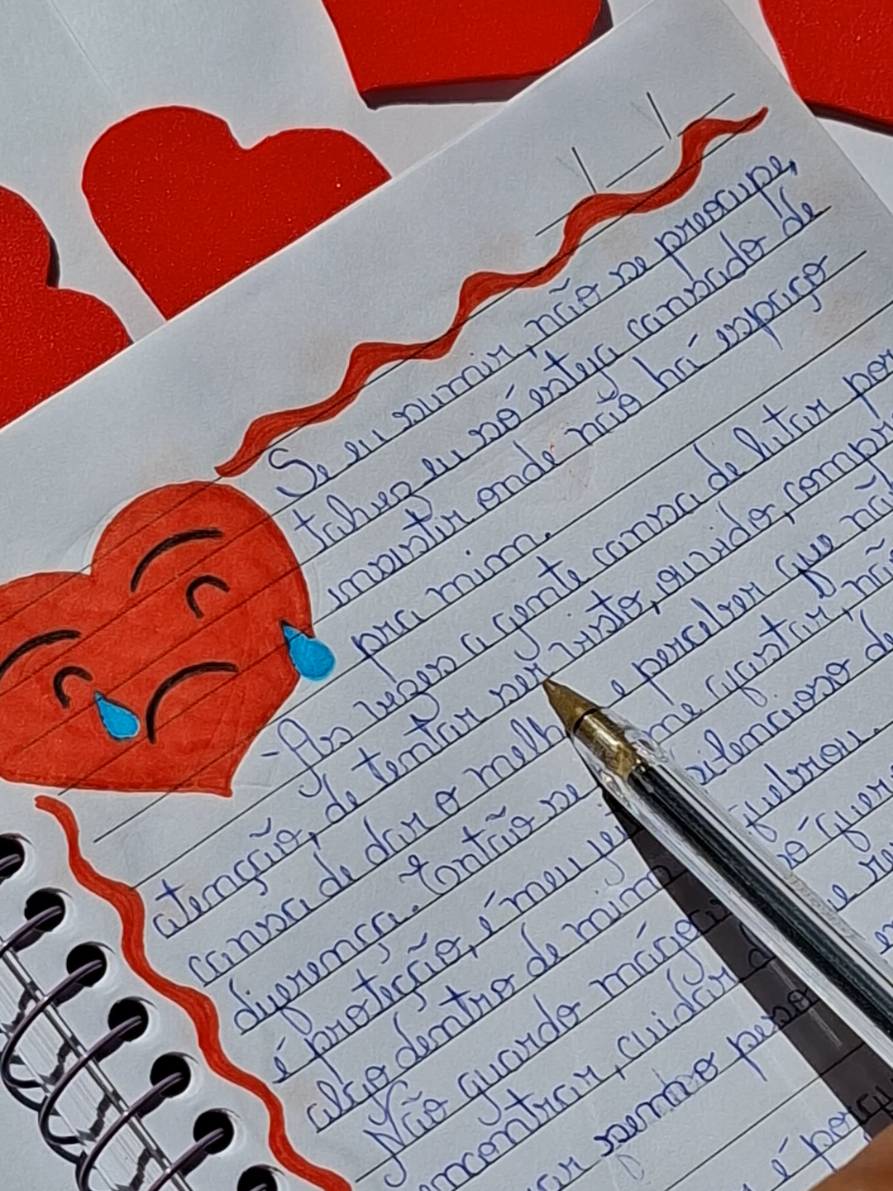 Se eu sumir, não se preocupe,
talvez eu só esteja cansado de
insistir onde não há espaço
pra mim.
-Às vezes a gente cansa de lutar por
atenção, de tentar ser visto, ouvido, compr
cansa de dar o melh e perceber que nã
diferença. Então se me afastar, nã
é proteção, é meu je silencioso d
algo dentro de mim quebrou.
Não guardo mágoa só quer
encontrar, cuidar d e re
nenso peso
é porq